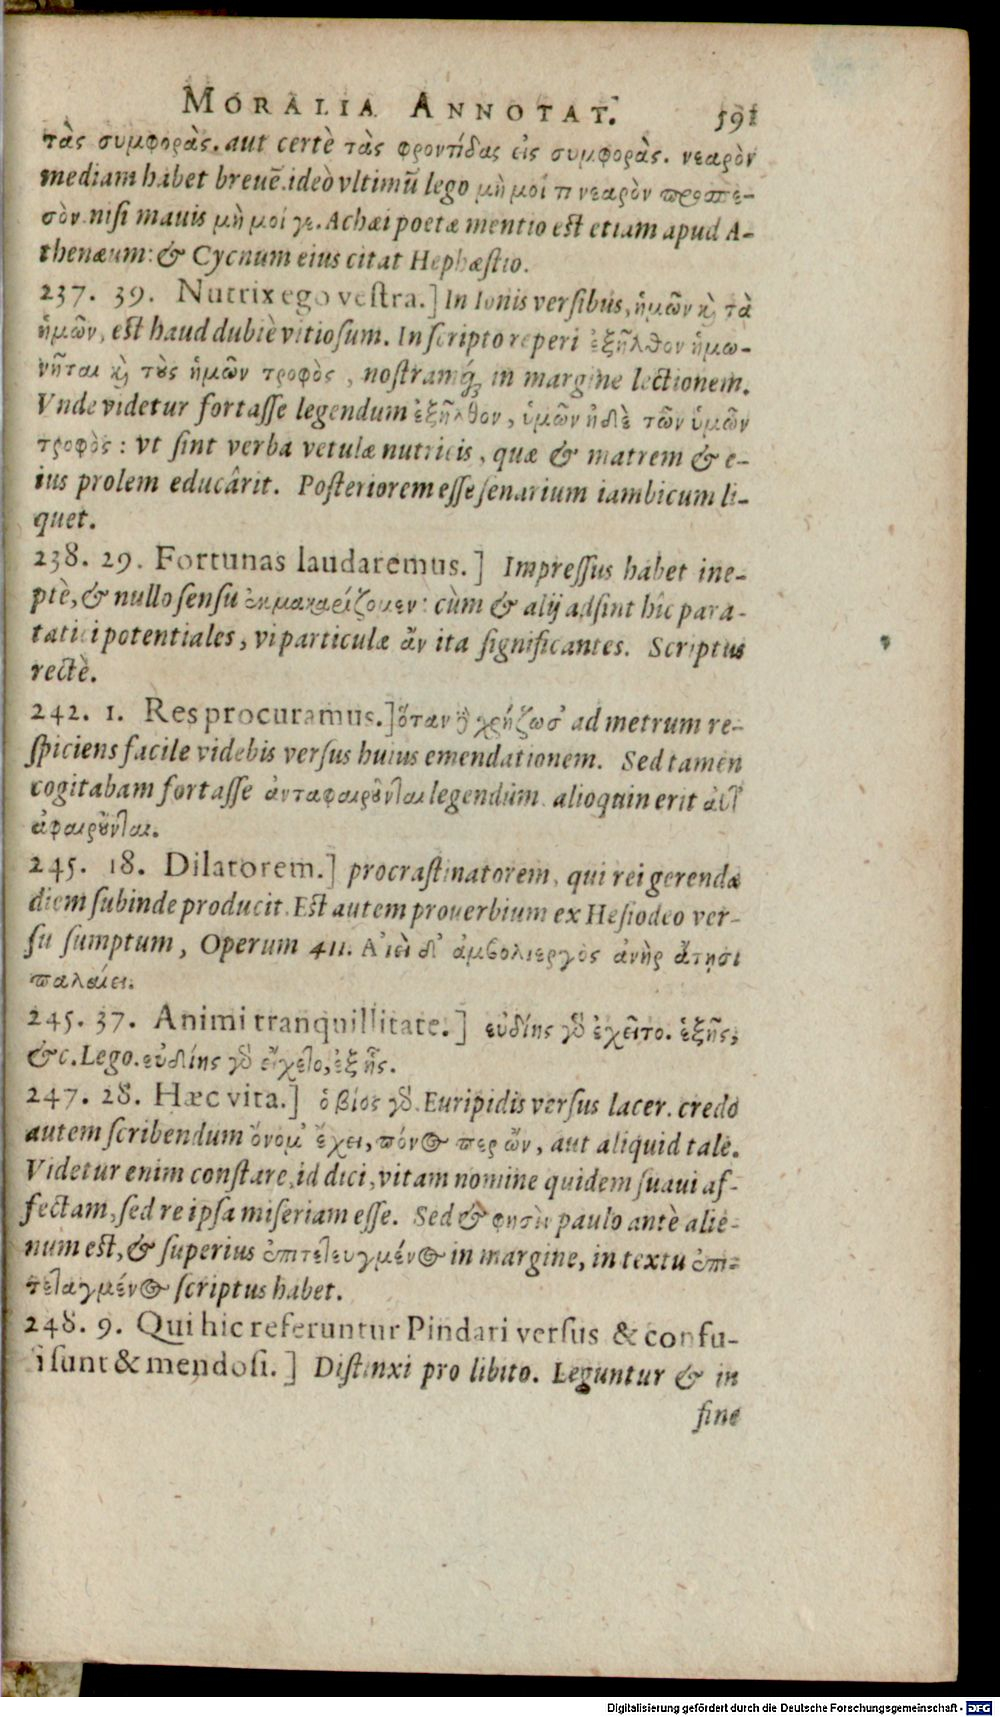 MORALIA ANNOTAT. 591
τὰς συμφορὰς. aut certè τὰς φροντίδας εἰς συμφορὰς. νεαρὸν
mediam habet breuē. ideò vltimū lego μὴ μοί τι νεαρὸν προσπε-
σὸν nisi mauis μὴ μοί γε. Achæi poetæ mentio est etiam apud A-
thenæum: & Cycnum eius citat Hephæstio.
237. 39. Nutrix ego vestra.] In Ionis versibus, ἡμῶν κὶ τὰ
ἡμῶν, est haud dubiè vitiosum. In scripto reperi ἐξῆλθον ἡμω-
νῆται κὶ τὸς ἡμῶν τροφὸς, nostramq́; in margine lectionem.
Vnde videtur fortasse legendum ἐξῆλθον, ὑμῶν ἠδὲ τῶν ὑμῶν
τροφὸς: vt sint verba vetulæ nutricis, quæ & matrem & e-
ius prolem educârit. Posteriorem esse senarium iambicum li-
quet.
238. 29. Fortunas laudaremus.] Impressus habet ine-
ptè, & nullo sensu ἐκμακαρίζομεν: cùm & alij adsint hîc para-
tatici potentiales, vi particulæ ἂν ita significantes. Scriptus
rectè.
242. 1. Res procuramus.] ὅταν δὲ χρήζωσ' ad metrum re-
spiciens facile videbis versus huius emendationem. Sed tamen
cogitabam fortasse ἀνταφαιροῦνται legendum. alioquin erit ἀντ'
ἀφαιροῦνται.
245. 18. Dilatorem.] procrastinatorem, qui rei gerendæ
diem subinde producit. Est autem prouerbium ex Hesiodeo ver-
su sumptum, Operum 411. Αἰεὶ δ' ἀμβολιεργὸς ἀνὴρ ἄτησι
παλαίει.
245. 37. Animi tranquillitate.] εὐδίης γὸ ἐχεῖτο. ἑξῆς;
&c. Lego. εὐδίης γὸ εἴχετο, ἑξῆς.
247. 28. Hæc vita.] ὁ βίος γὸ. Euripidis versus lacer. credo
autem scribendum ὄνομ' ἔχει, πόνος περ ὢν, aut aliquid tale.
Videtur enim constare, id dici, vitam nomine quidem suaui af-
fectam, sed re ipsa miseriam esse. Sed & φησὶν paulo antè alie-
num est, & superius ἐπιτετευγμένος in margine, in textu ἐπι-
τεταγμένος scriptus habet.
248. 9. Qui hic referuntur Pindari versus & confu-
si sunt & mendosi.] Distinxi pro libito. Leguntur & in
fine
Digitalisierung gefördert durch die Deutsche Forschungsgemeinschaft - DFG